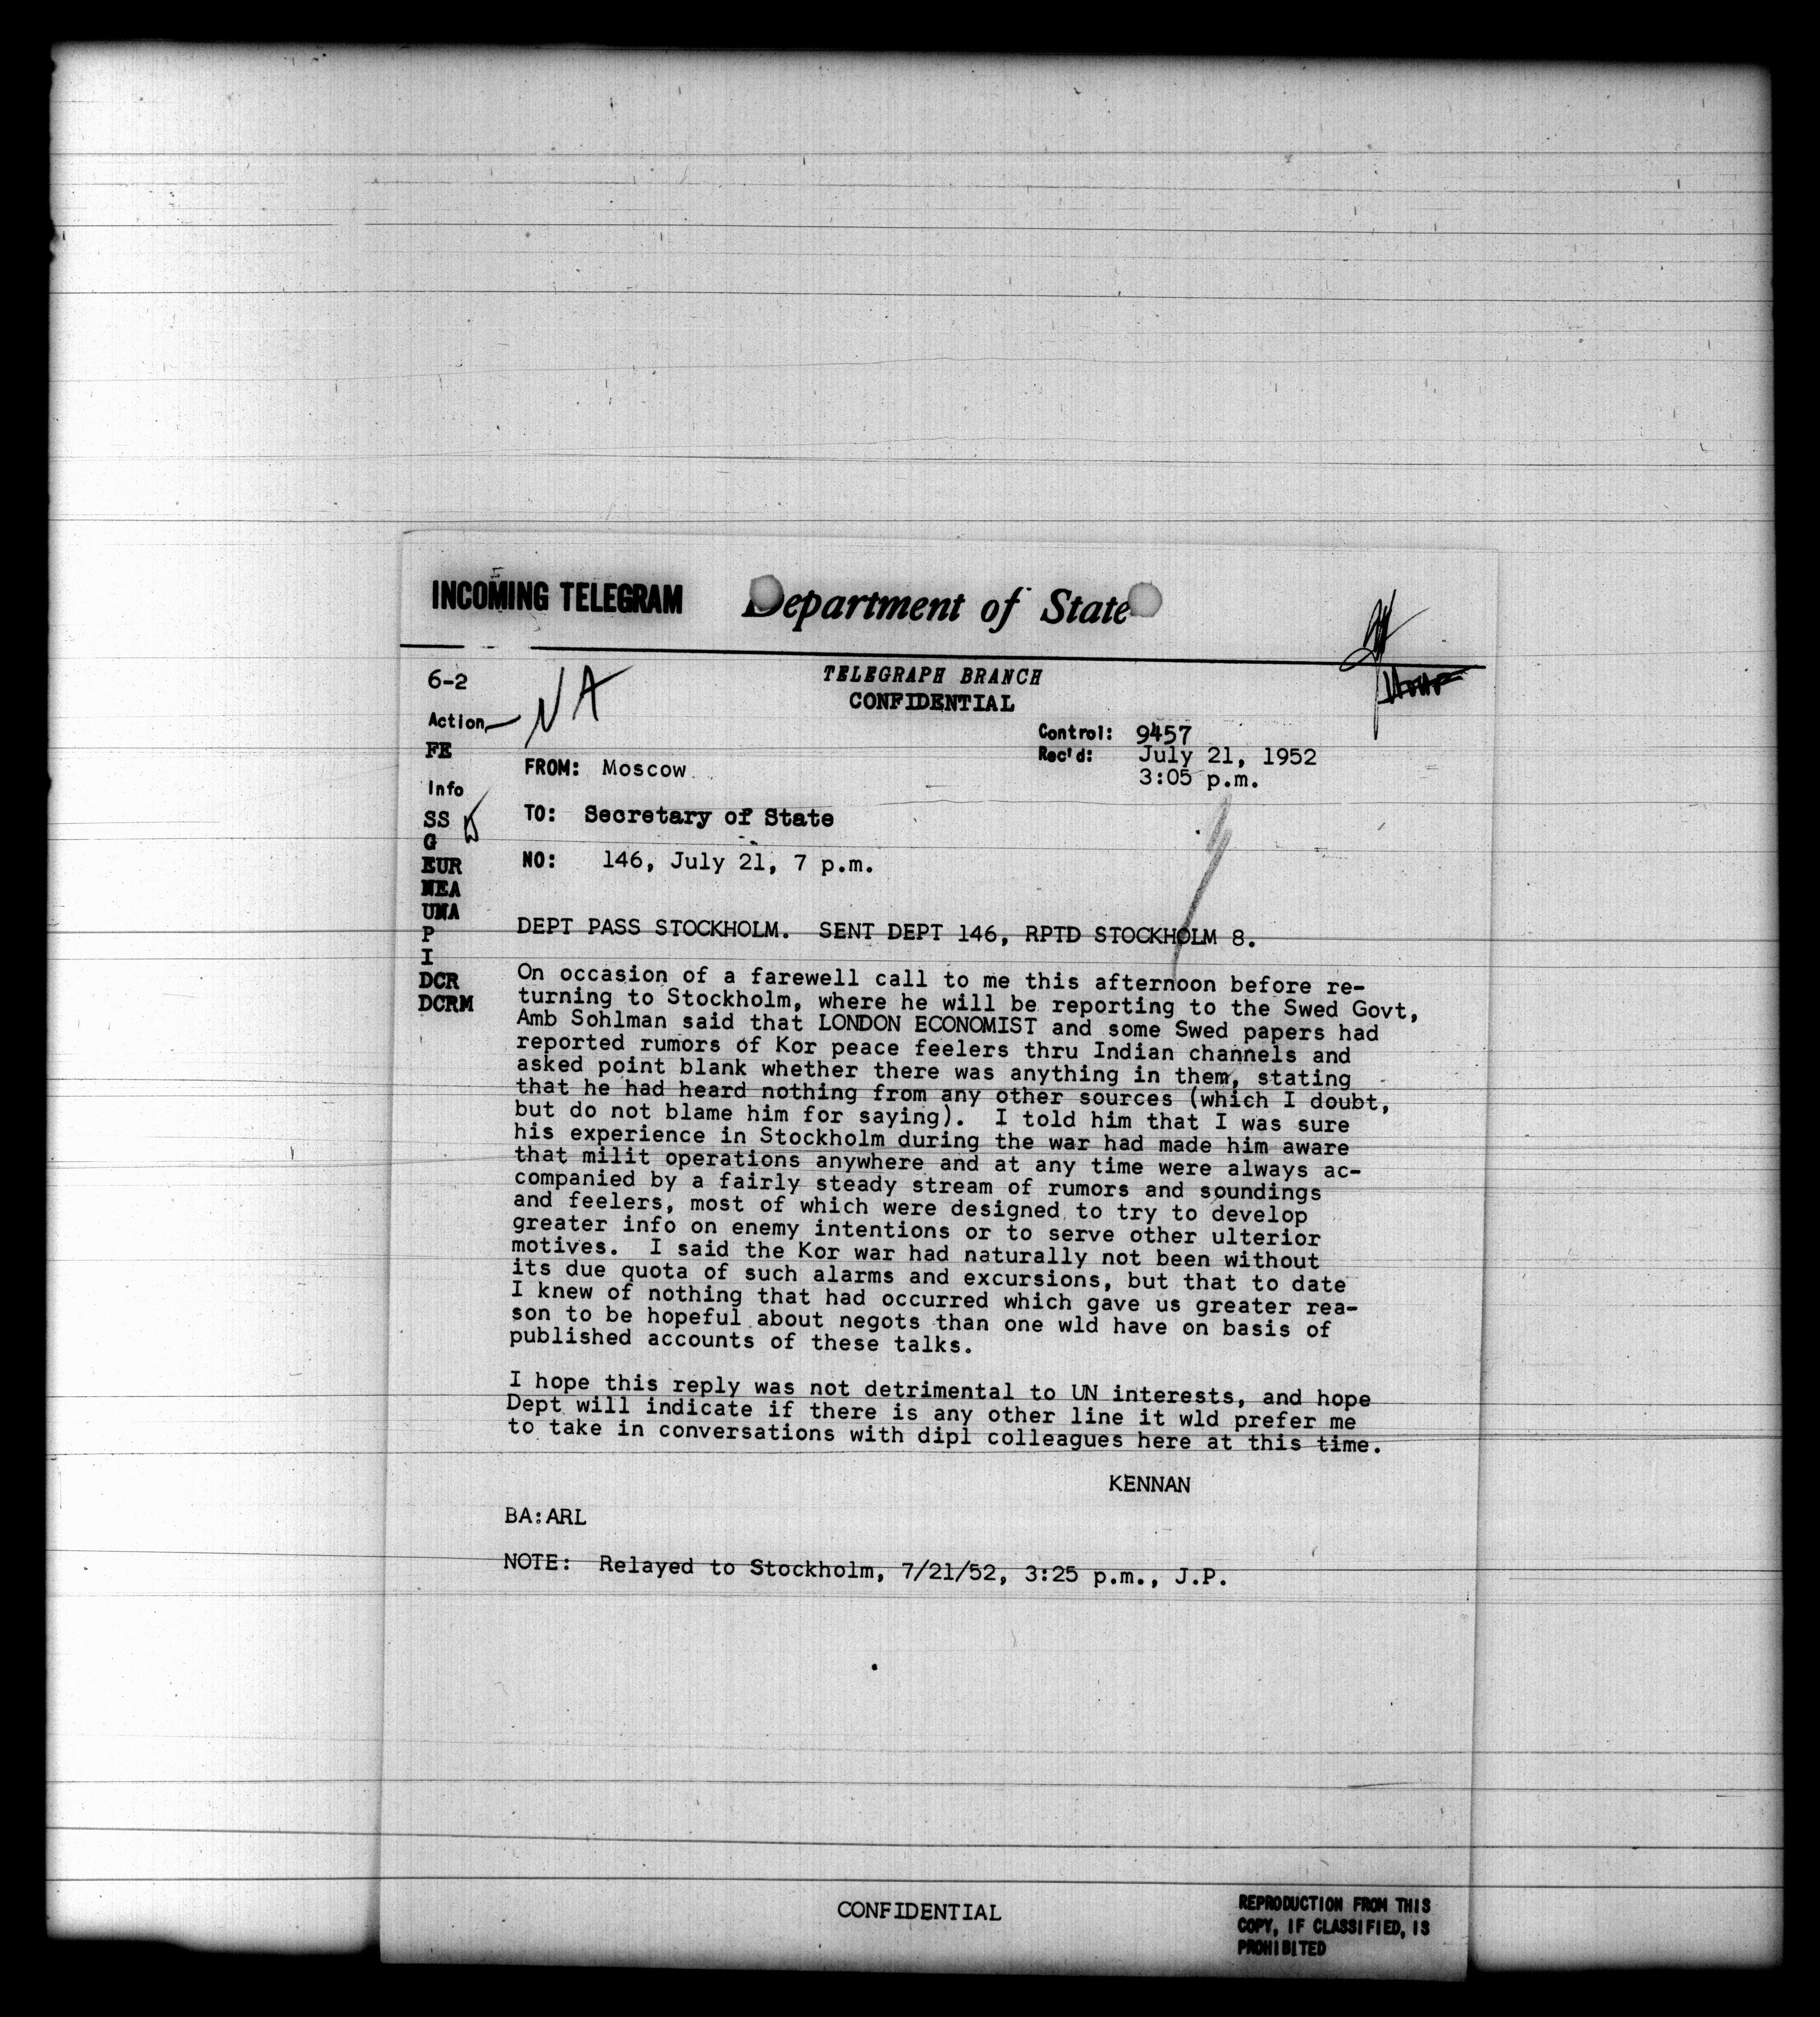 INCOMING TELEGRAM
Department of State
6-2
NA
TELEGRAPH BRANCH
CONFIDENTIAL
Action
FE
Control: 9457
Rec'd: July 21, 1952
3:05 p.m.
FROM: Moscow
Info
SS
G
EUR
NEA
UNA
P
I
DCR
DCRM
TO: Secretary of State
NO: 146, July 21, 7 p.m.
DEPT PASS STOCKHOLM. SENT DEPT 146, RPTD STOCKHOLM 8.
On occasion of a farewell call to me this afternoon before re-
turning to Stockholm, where he will be reporting to the Swed Govt,
Amb Sohlman said that LONDON ECONOMIST and some Swed papers had
reported rumors of Kor peace feelers thru Indian channels and
asked point blank whether there was anything in them, stating
that he had heard nothing from any other sources (which I doubt,
but do not blame him for saying). I told him that I was sure
his experience in Stockholm during the war had made him aware
that milit operations anywhere and at any time were always ac-
companied by a fairly steady stream of rumors and soundings
and feelers, most of which were designed to try to develop
greater info on enemy intentions or to serve other ulterior
motives. I said the Kor war had naturally not been without
its due quota of such alarms and excursions, but that to date
I knew of nothing that had occurred which gave us greater rea-
son to be hopeful about negots than one wld have on basis of
published accounts of these talks.
I hope this reply was not detrimental to UN interests, and hope
Dept will indicate if there is any other line it wld prefer me
to take in conversations with dipl colleagues here at this time.
KENNAN
BA:ARL
NOTE: Relayed to Stockholm, 7/21/52, 3:25 p.m., J.P.
CONFIDENTIAL
REPRODUCTION FROM THIS
COPY, IF CLASSIFIED, IS
PROHIBITED